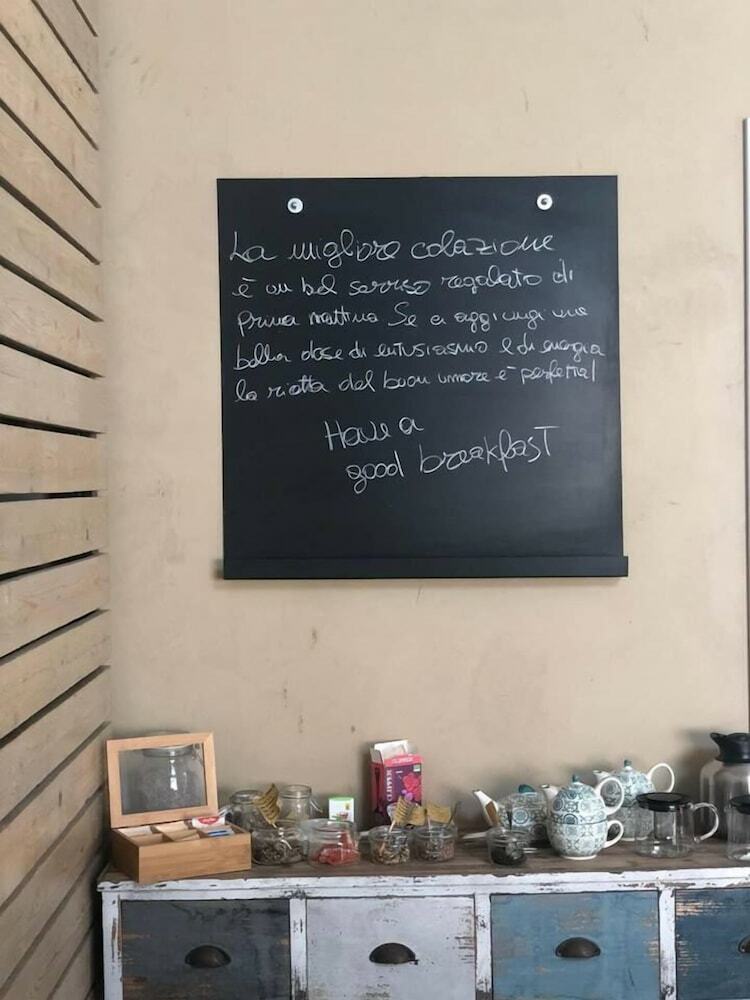 La migliore colazione
è un bel sorriso regalato di
prima mattina Se ci aggiungi una
bella dose di entusiasmo e di energia
la ricetta del buon umore è perfetta!
Have a
good breakfasT